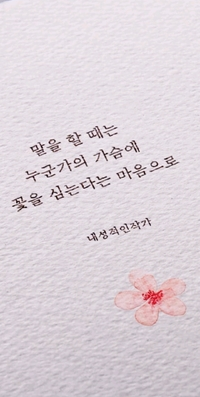 말을 할 때는
누군가의 가슴에
꽃을 심는다는 마음으로
내성적인작가